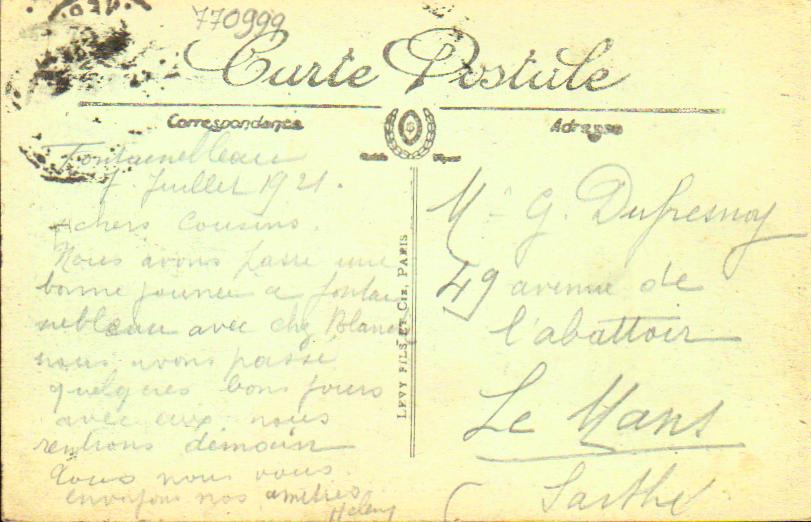 770999
Carte Postale
Correspondance
Adresse
Fontainebleau
7 Juillet 1921.
chers Cousins.
Nous avons passé une
bonne journée a fontai
nebleau avec chez Blanch
nous avons passé
quelques bons jours
avec eux nous
rentrons demain
Tous nous vous
envoyons nos amitiés
Helen
LEVY FILS ET CIE, PARIS
Mr G. Dufresnoy
49 avenue de
l'abattoir
Le Mans
Sarthe